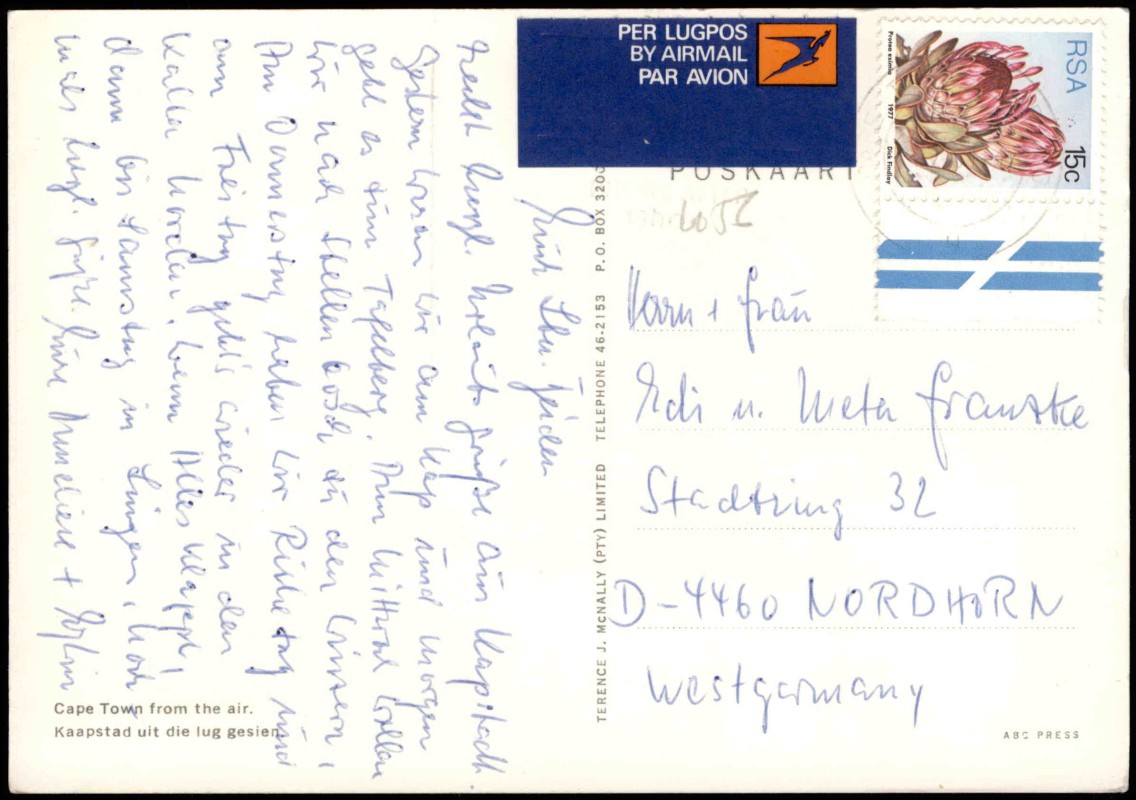 PER LUGPOS
BY AIRMAIL
PAR AVION
RSA
15c
Protea eximia 1977 Dick Findlay
POSKAART
4056
TERENCE J. MCNALLY (PTY) LIMITED TELEPHONE 46-2153 P. O. BOX 320
Herrn + Frau
Edi u. Meta Franske
Stadtring 32
D-4460 NORDHORN
Westgermany
Recht herzl. Grüße aus Kapstadt.
Gestern waren wir am Kap und morgen
geht es zum Tafelberg. Am Mittwoch wollen
wir nach Stellenbosch zu den Winzern,
Am Donnerstag haben wir Ruhetag und
am Freitag geht's wieder in den
kalten Norden, wenn Alles klappt,
dann bis Samstag in Lingen,
noch herzl. Grüße
Cape Town from the air.
Kaapstad uit die lug gesien.
ABC PRESS